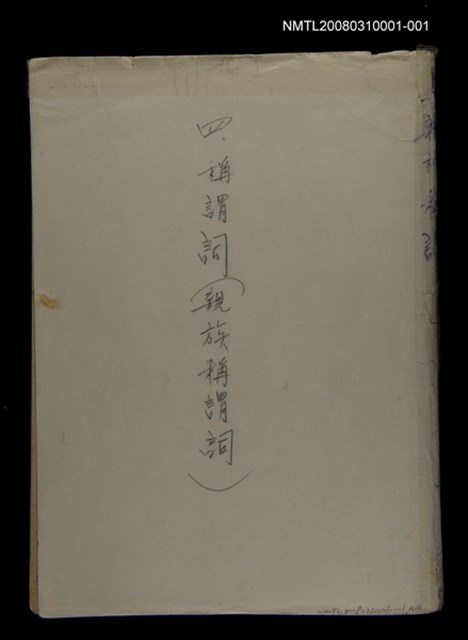 NMTL20080310001-001
四.稱謂詞(親族稱謂詞)